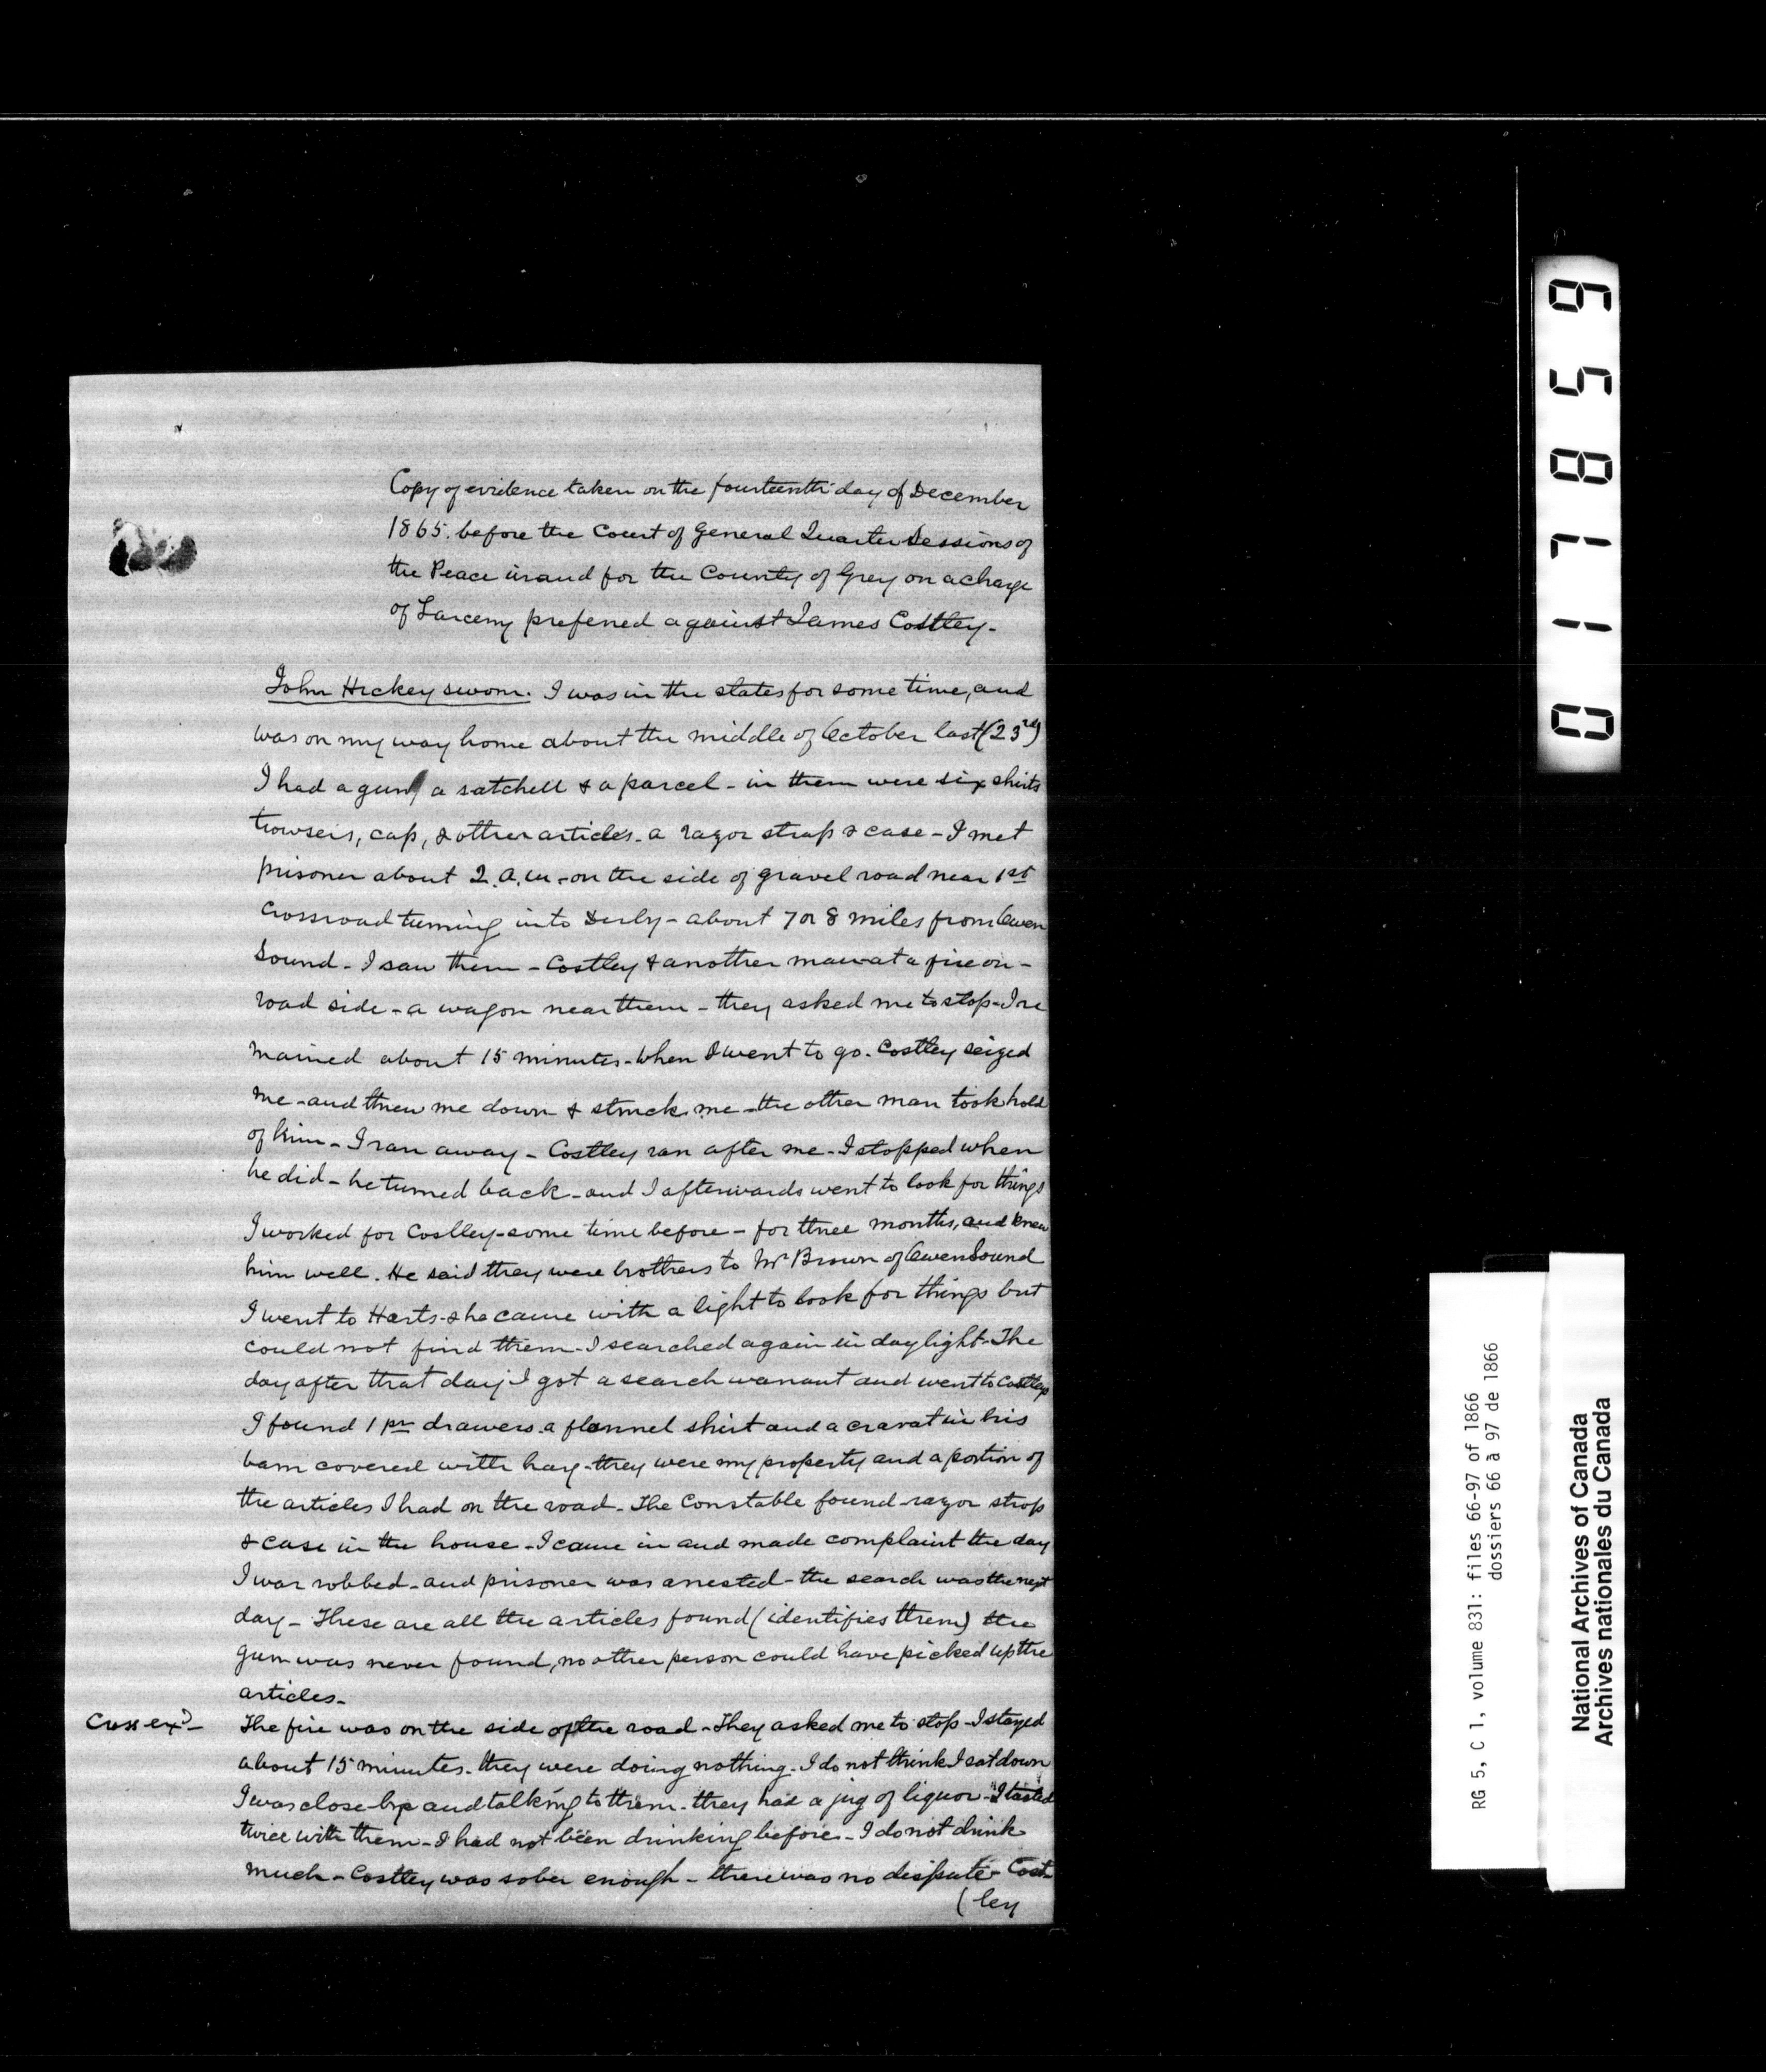 Copy of evidence taken on the fourteenth day of December
1865. before the Court of General Quarter Sessions of
the Peace in and for the County of Grey on a charge
of Larceny preferred against James Costley-
John Hickey sworn. I was in the states for some time, and
was on my way home about the middle of October last (23rd)
I had a gun, a satchell & a parcel - in them were six shirts
trowsers, cap, & other articles - a razor strap & case - I met
prisoner about 2. a.m. - on the side of gravel road near 1st
crossroad turning into Derby - about 7 or 8 miles from Owen
Sound - I saw them - Costley & another man - at a fire on -
road side - a wagon near them - they asked me to stop - I re
mained about 15 minutes - when I went to go. Costley seized
me - and threw me down & struck me - the other man took hold
of him - I ran away - Costley ran after me - I stopped when
he did - he turned back - and I afterwards went to look for things
I worked for Costley - some time before - for three months, and knew
him well. He said they were brothers to Mr Brown of Owen Sound
I went to Harts - & he came with a light to look for things but
could not find them - I searched again in daylight - The
day after that day I got a search warrant and went to Costleys
I found 1 pr drawers a flannel shirt and a cravat in his
barn covered with hay - they were my property and a portion of
the articles I had on the road - The Constable found - razor strop
& case in the house - I came in and made complaint the day
I was robbed - and prisoner was arrested - the search was the next
day - These are all the articles found (identifies them) the
gun was never found, no other person could have picked up the
articles -
Cross exd -
The fire was on the side of the road - They asked me to stop - I stayed
about 15 minutes - they were doing nothing - I do not think I sat down
I was close by and talking to them - they had a jug of liquor - I tasted
twice with them - I had not been drinking before - I do not drink
much - Costley was sober enough - there was no dispute - Cost-
(ley
017859
RG 5, C 1, volume 831: files 66-97 of 1866
dossiers 66 à 97 de 1866
National Archives of Canada
Archives nationales du Canada